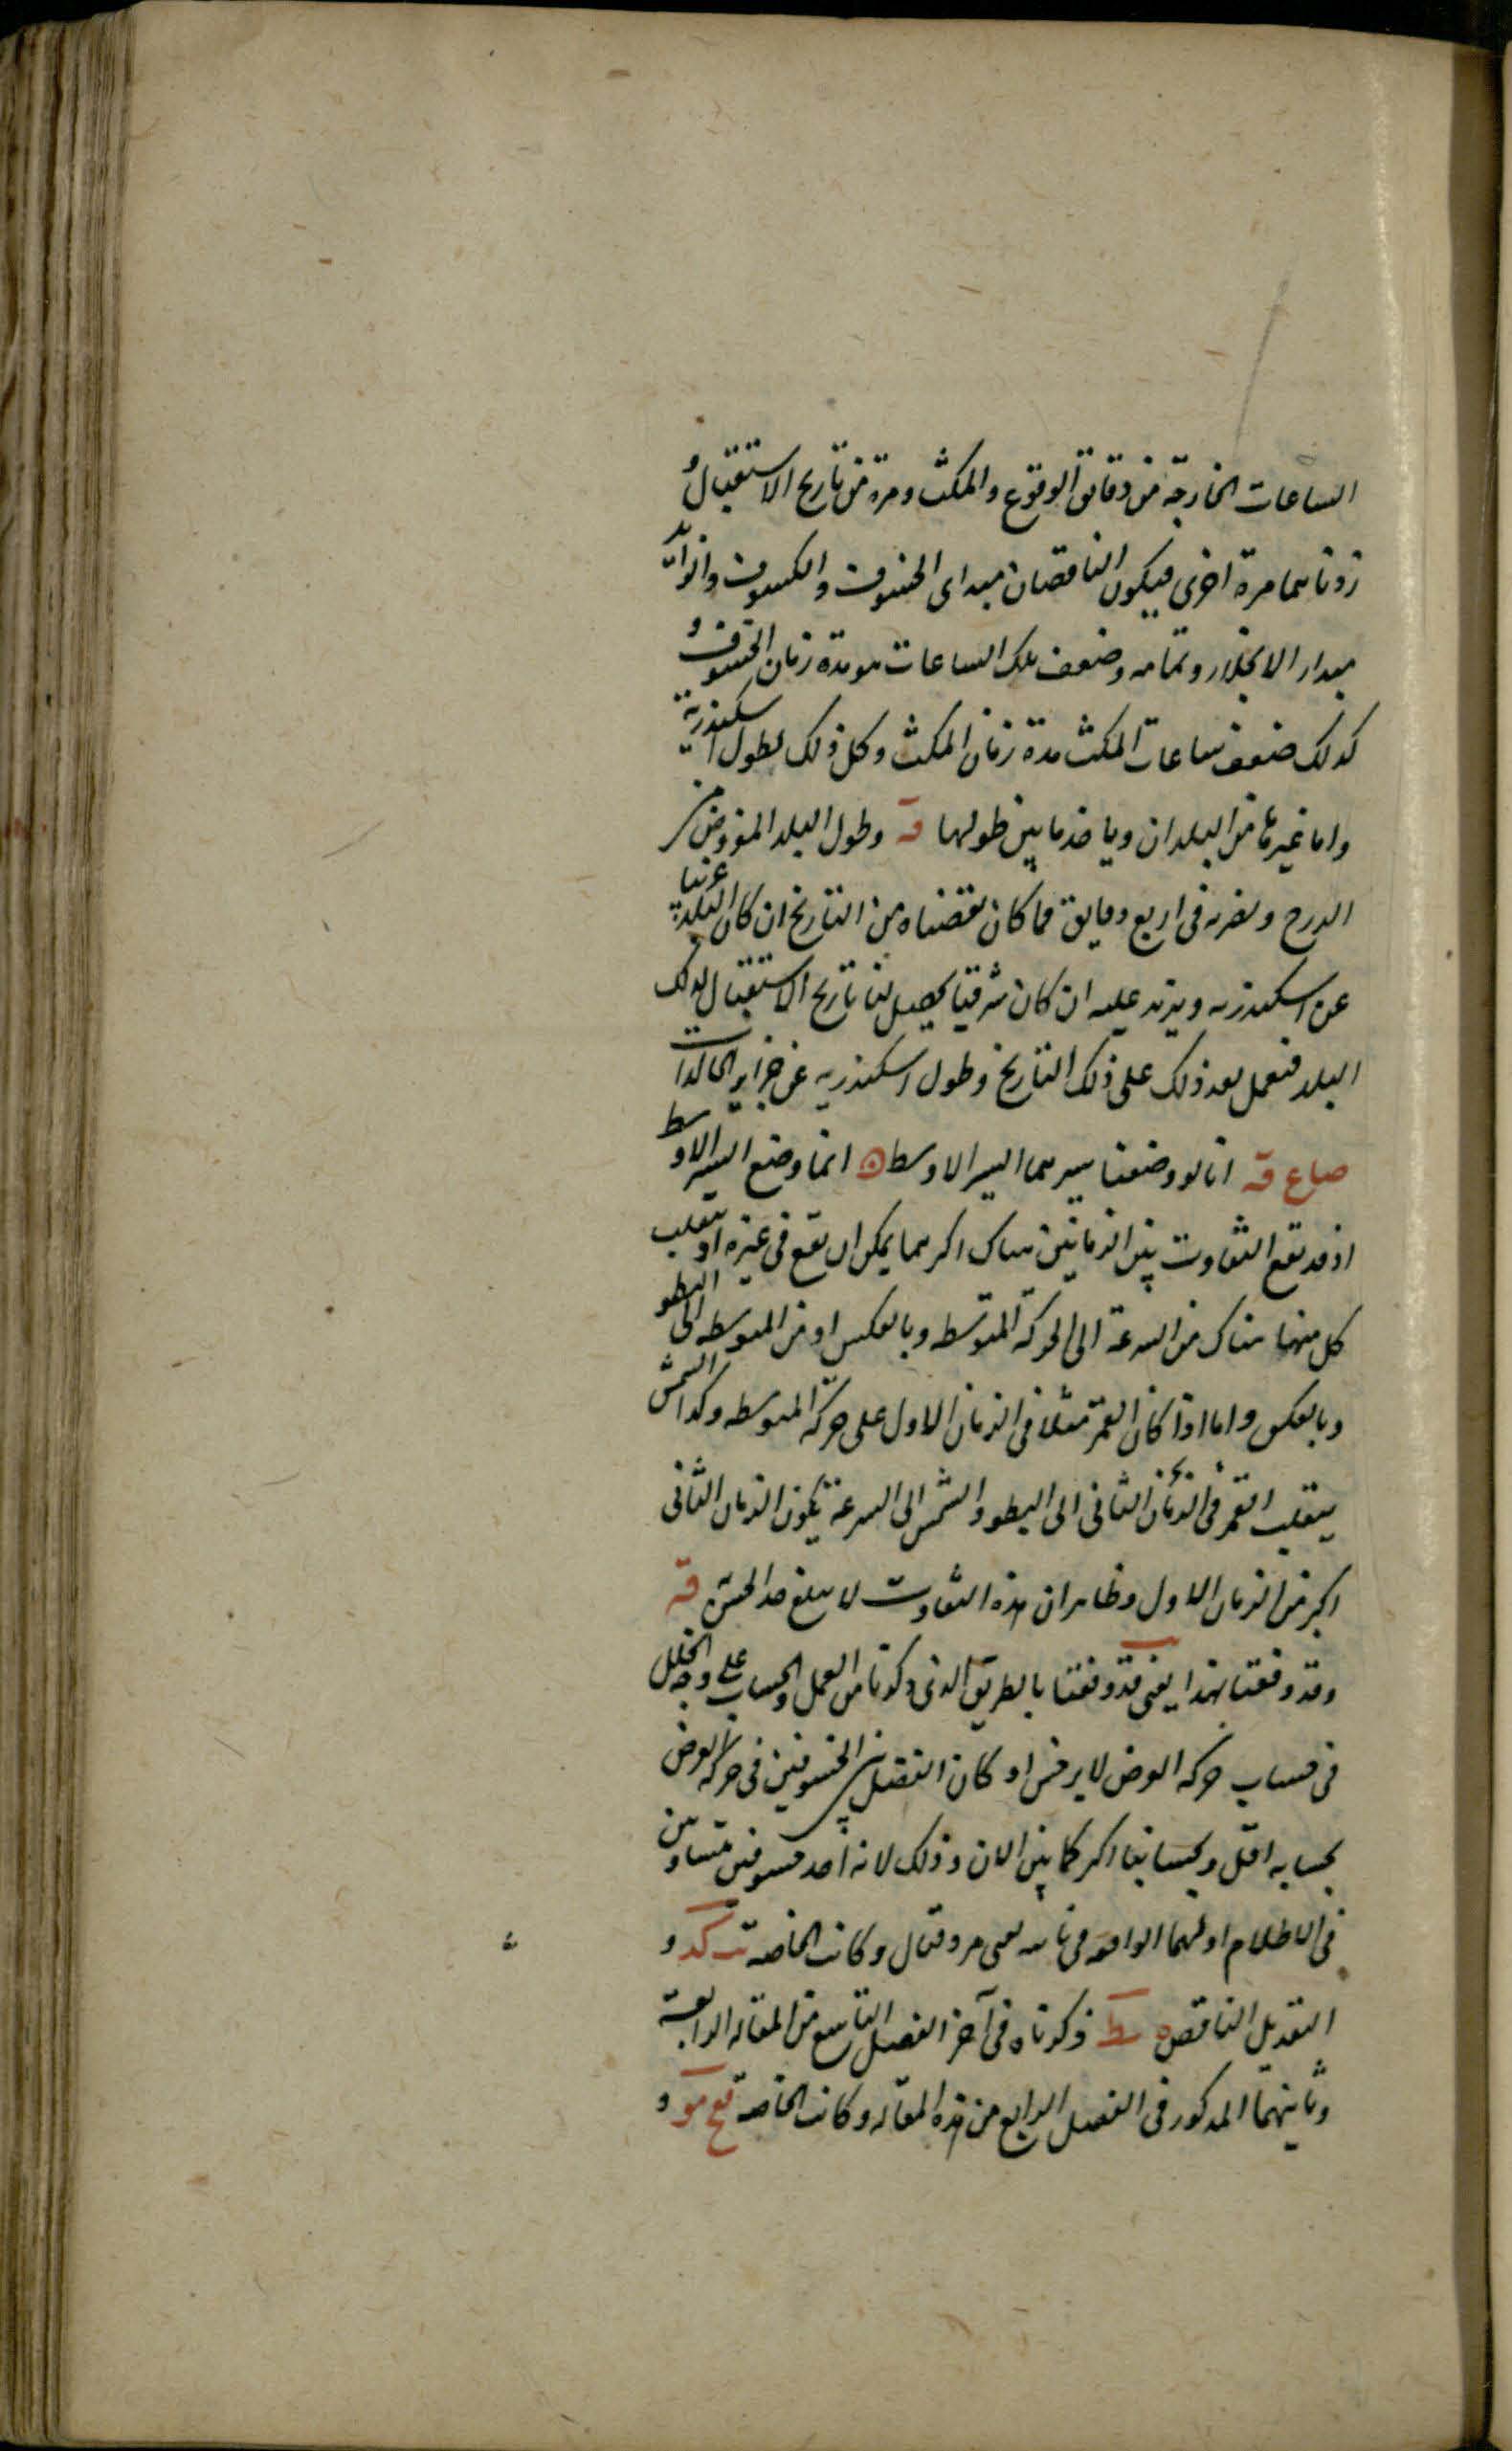 الساعات الخارجة من دقايق الوقوع والمكث ومرة من تاريخ الاستقبال و
زدناهما مرة اخرى فيكون الناقصان مبداى الخسوف والكسوف والزايد
مبدار الانجلاء وتمامه وضعف تلك الساعات هو مدة زمان الخسوف و
كذلك ضعف ساعات المكث مدة زمان المكث وكل ذلك لطول اسكندرية
واما غيرها من البلدان وياخذ ما بين طولها قه وطول البلد المفروض من
الدرج ونضربه فى اربع دقايق فما كان نقصناه من التاريخ ان كان البلد غربيا
عن اسكندريه ويزيد عليه ان كان شرقيا يحصل لنا تاريخ الاستقبال لذلك
البلد فنعمل بعد ذلك على ذلك التاريخ وطول اسكندريه عن جزاير الخالدات
صاع قه انا لو وضعنا سيرهما السير الاوسط ۞ انما وضع السير الاوسط
اذ قد يقع التفاوت بين الزمانين هناك اكثر مما يمكن ان يقع فى غيره او ينقلب
كل منهما هناك من السرعة الى الحركة المتوسطه وبالعكس او من المتوسطه الى البطو
وبالعكس واما اذا كان القمر مثلا فى الزمان الاول على حركة المتوسطه وكذا الشمس
ينقلب القمر فى الزمان الثانى الى البطو والشمس الى السرعة يكون الزمان الثانى
اكبر من الزمان الاول وظاهر ان هذه التفاوت لا يبلغ حد الحس قه
وقد وقفنا بهذا يعنى قد وقفنا بالطريق الذى ذكرنا من العمل والحساب على وجه الخلل
فى حساب حركه العرض لابرخس او كان الفضل بين الخسوفين فى حركه العرض
بحسابه اقل وبحسابنا اكثر كما بين الان وذلك لانه اخذ خسوفين متساويين
فى الاظلام اولهما الواقعه فى ثانيه لعى مردوقال وكانت الخاصه تـ كد و
التعديل الناقص ه يط ذكرناه فى آخر الفصل التاسع من المقاله الرابعة
وثانيهما المذكور فى الفصل الرابع من هذه المقاله وكانت الخاصه قع مو و